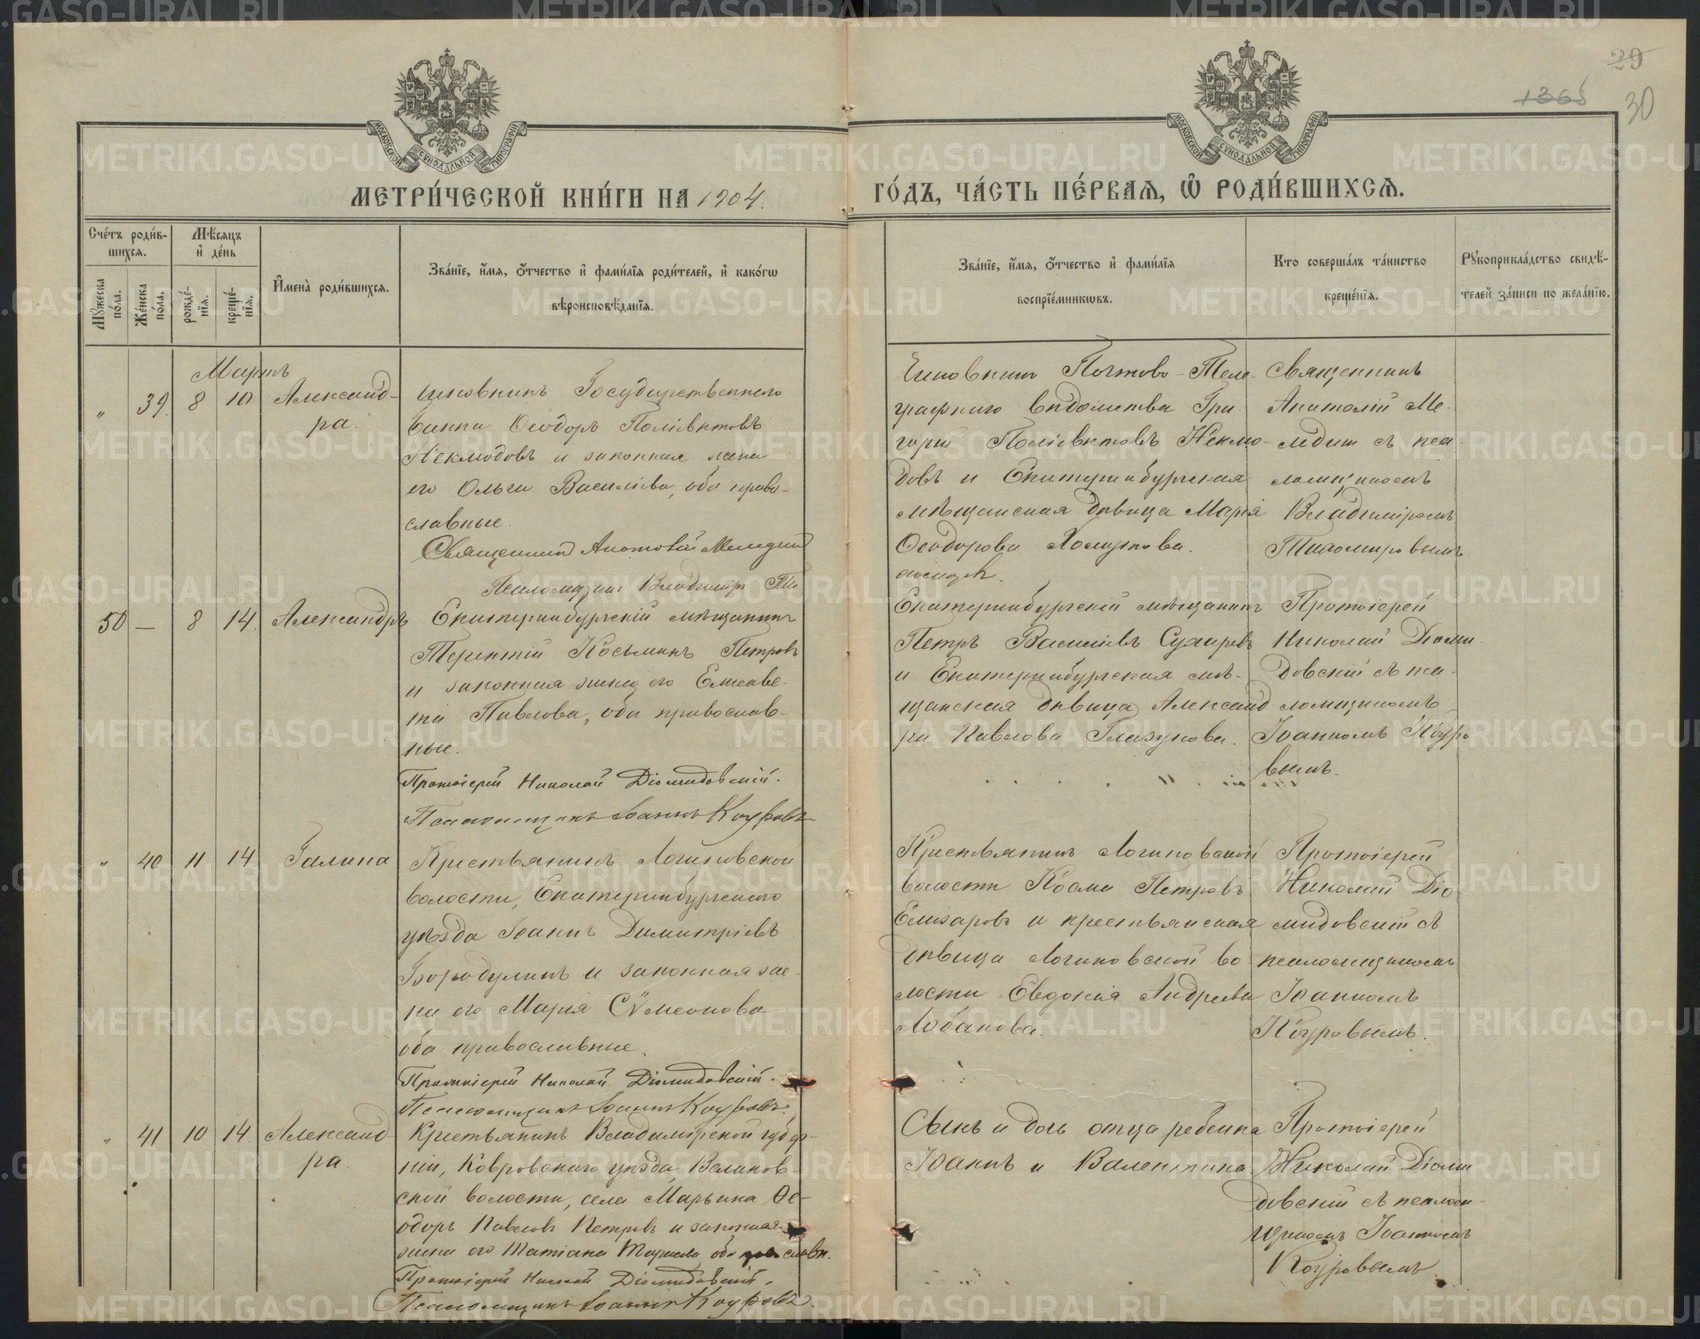 39
1365
30
МОСКОВСКОЙ СѴНОДАЛЬНОЙ ТИПОГРАФІИ
МОСКОВСКОЙ СѴНОДАЛЬНОЙ ТИПОГРАФІИ
МЕТРИ́ЧЕСКОЙ КНИ́ГИ НА 1904.
ГО́ДЪ, ЧА́СТЬ ПЕ́РВАЯ, Ѡ҆ РОДИ́ВШИХСЯ.
Сче́тъ роди́в-
шихся.
Мꙋжеска по́ла.
Же́нска по́ла.
Мѣ́сяцъ
и҆ де́нь
рожде́-
нїя.
креще́-
нїя.
И҆мена̀ роди́вшихся.
Зва́нїе, и҆́мя, ѻ҆́тчество и҆ фами́лїя роди́телей, и҆ како́гѡ
вѣроисповѣ́данїя.
Зва́нїе, и҆́мя, ѻ҆́тчество и҆ фами́лїя
воспрїе́мникѡвъ.
Кто соверша́лъ та́инство
креще́нїя.
Рꙋкоприкла́дство свидѣ́-
телей за́писи по жела́нїю.
Мартъ
„ 39. 8 10 Александ-
ра.
Чиновникъ Государственнаго
Банка Ѳеодоръ Поліевктовъ
Некмодовъ и законная жена
его Ольга Василіева, оба право-
славные.
Священникъ Анатолій Меледин
Псаломщикъ Владимір Ти
Чиновникъ Почтово-Теле-
графнаго вѣдомства Гри
горій Поліевктовъ Некмо-
довъ и Екатеринбургская
мѣщанская дѣвица Марія
Ѳеодорова Холкунова.
Священникъ
Анатолій Ме-
ледин съ пса-
ломщикомъ
Владиміромъ
Тихомировымъ
50 — 8 14 Александръ
Екатеринбургскій мѣщанинъ
Терентій Косьминъ Петровъ
и законная жена его Елисаве-
та Павлова, оба православ-
ные.
Протоіерей Николай Діомидовскій.
Псаломщикъ Іоаннъ Коуровъ
Екатеринбургскій мѣщанинъ
Петръ Василіевъ Сухаревъ
и Екатеринбургская мѣ-
щанская дѣвица Александ
ра Павлова Глазунова.
Протоіерей
Николай Діоми
довскій съ пса-
ломщикомъ
Іоанномъ Коуро
вымъ.
„ 40 11 14 Галина
Крестьянинъ Логиновской
волости, Екатеринбургскаго
уѣзда Іоаннъ Димитріевъ
Бородулинъ и законная же-
на его Марія Сѵмеонова
оба православные.
Протоіерей Николай Діомидовскій.
Псаломщикъ Іоаннъ Коуровъ.
Крестьянинъ Логиновской
волости Косма Петровъ
Елизаровъ и крестьянская
дѣвица Логиновской во
лости Евдокія Андреева
Лобанова.
Протоіерей
Николай Діо
мидовскій съ
псаломщикомъ
Іоанномъ
Коуровымъ.
„ 41 10 14 Александ
ра.
Крестьянинъ Владимірской губер-
ніи, Ковровскаго уѣзда Великов-
ской волости, села Марьина Ѳе-
одоръ Павловъ Петровъ и законная
жена его Татіана
Протоіерей Николай Діомидовскій.
Псаломщикъ Іоаннъ Коуровъ.
Сынъ и дочь отца ребенка
Іоаннъ и Валентина
Протоіерей
Николай Діоми
довскій съ псалом-
щикомъ Іоанномъ
Коуровымъ
METRIKI.GASO-URAL.RU